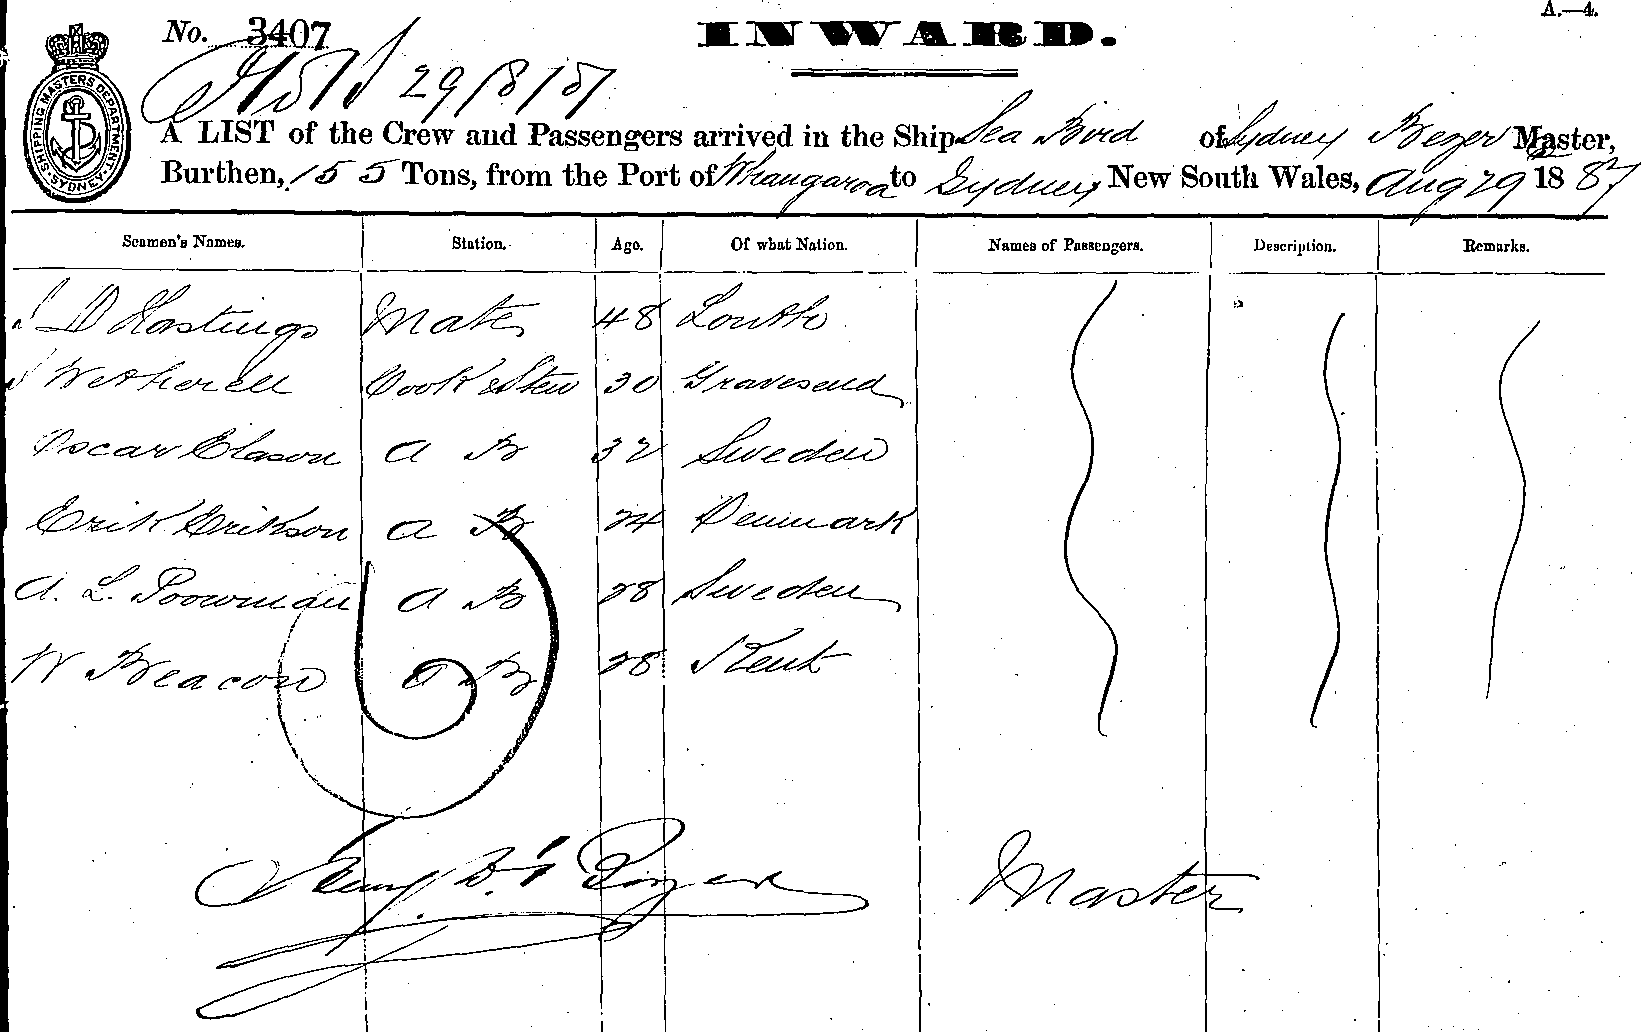 A.—4.
No. 3407
INWARD.
29/8/87
SHIPPING MASTERS DEPARTMENT SYDNEY
A LIST of the Crew and Passengers arrived in the Ship Sea Bird of Sydney Master,
Burthen, 155 Tons, from the Port of Whangaroa to Sydney, New South Wales, Aug 29 1887
Seamen's Names. Station. Age. Of what Nation. Names of Passengers. Description. Remarks.
D Hastings Mate 48 Louth
Wetherell Cook & Stew 30 Gravesend
Oscar Clason A B 32 Sweden
Erik Erikson A B 24 Denmark
A. L. A B 28 Sweden
W Beacon A B 28 Kent
Master